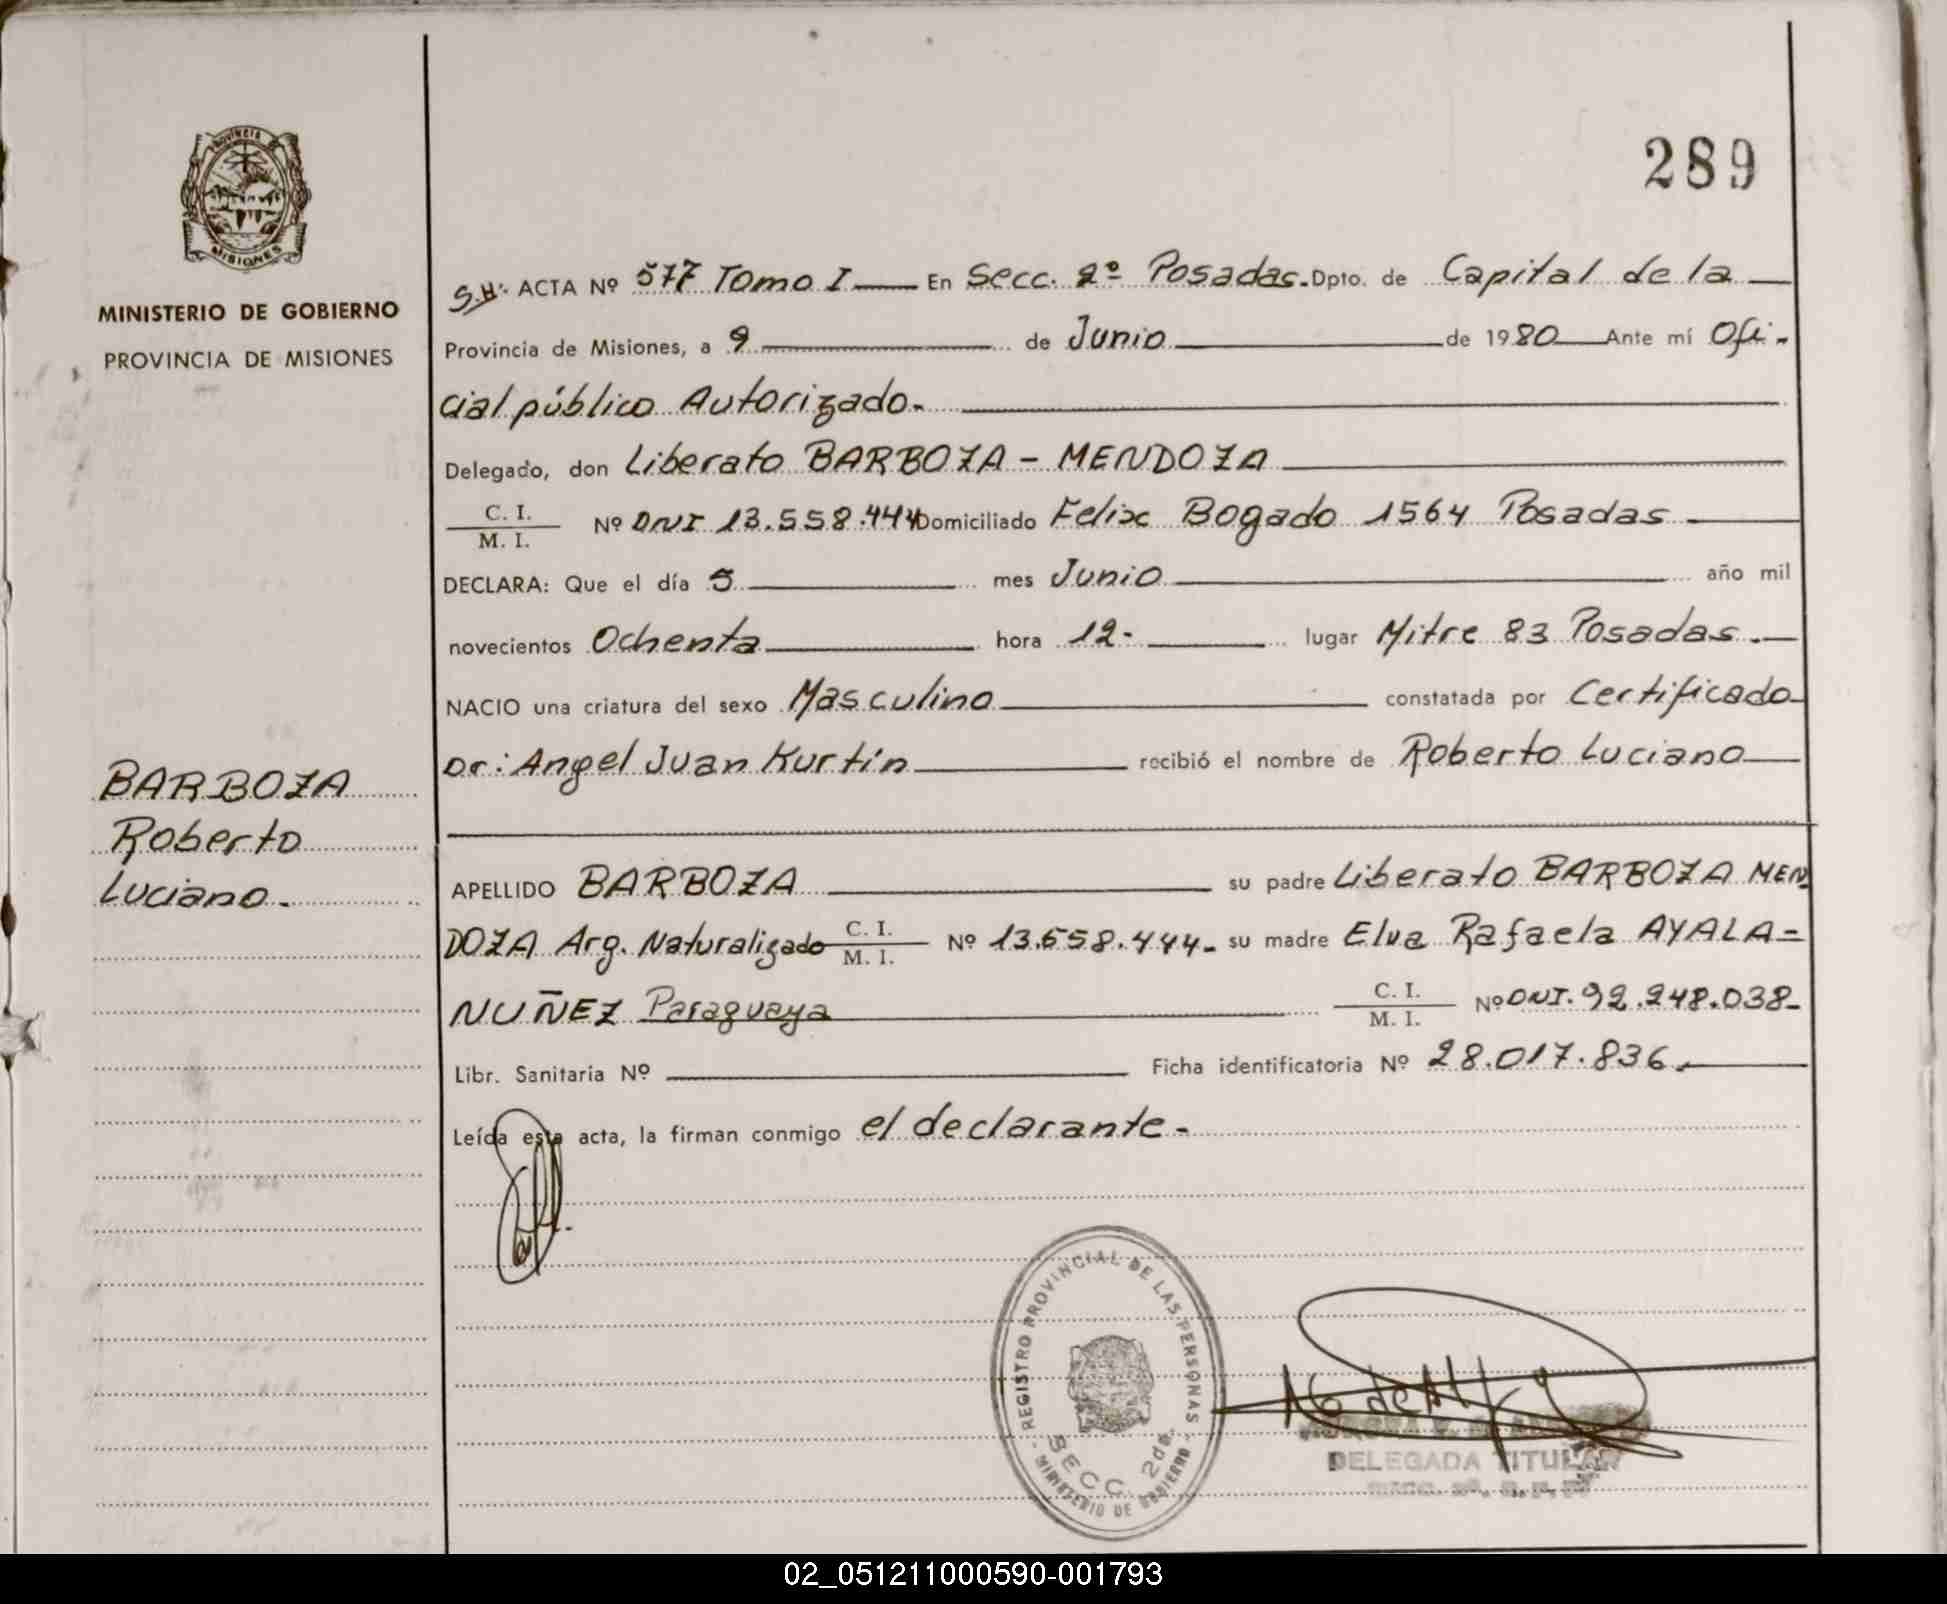 289
PROVINCIA DE
MISIONES
MINISTERIO DE GOBIERNO
PROVINCIA DE MISIONES
S.H. ACTA Nº 577 Tomo I En Secc. 2º Posadas. Dpto. de Capital de la
Provincia de Misiones, a 9 de Junio de 1980 Ante mí Ofi-
cial público Autorizado.
Delegado, don Liberato BARBOZA - MENDOZA
C. I.
M. I. Nº DNI 13.558.444 Domiciliado Felix Bogado 1564 Posadas
DECLARA: Que el día 5 mes Junio año mil
novecientos Ochenta hora 12- lugar Mitre 83 Posadas.
NACIO una criatura del sexo Masculino constatada por Certificado
Dr: Angel Juan Kurtin recibió el nombre de Roberto Luciano
BARBOZA
Roberto
Luciano.
APELLIDO BARBOZA su padre Liberato BARBOZA MEN
DOZA Arg. Naturalizado C. I.
M. I. Nº 13.558.444- su madre Elva Rafaela AYALA-
NUÑEZ Paraguaya C. I.
M. I. Nº DNI. 92.248.038-
Libr. Sanitaria Nº Ficha identificatoria Nº 28.017.836.
Leída esta acta, la firman conmigo el declarante-
REGISTRO PROVINCIAL DE LAS PERSONAS
SECC. 2da.
MINISTERIO DE GOBIERNO
DELEGADA TITULAR
02_051211000590-001793